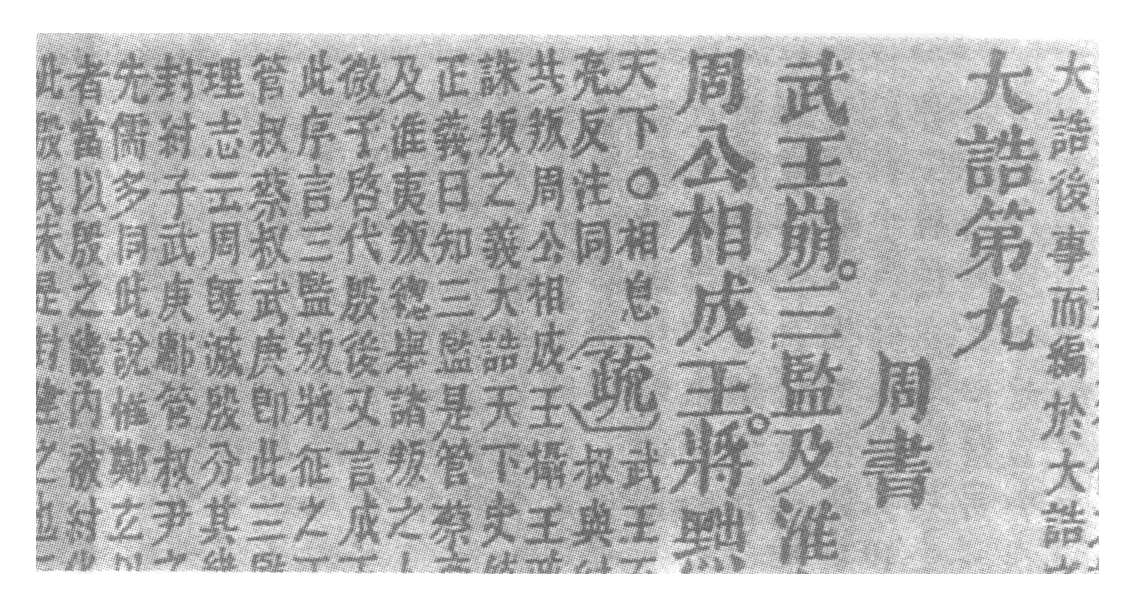 大誥後事而編於大誥
大誥第九
周書
武王崩。三監及淮
周公相成王。將黜
天下〇相息
亮反注同
疏
武王
叔與
共叛周公相成王攝王
誅叛之義大誥天下史
正義曰知三監是管蔡
及淮夷叛緫舉諸叛之
微子啓代殷後又言成
此序言三監叛將征之
管叔蔡叔武庚卽此三
理志云周旣滅殷分其
封紂子武庚鄘管叔尹
先儒多同此說惟鄭玄
者當以殷之畿內被紂
此殷民未是封建之也